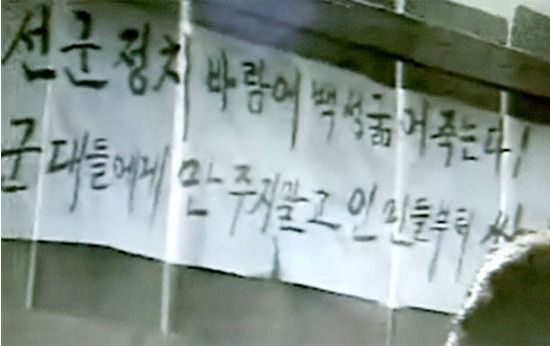 선군정치 바람에 백성굶어죽는다!
군대들에게 만 주지말고 인민들부터